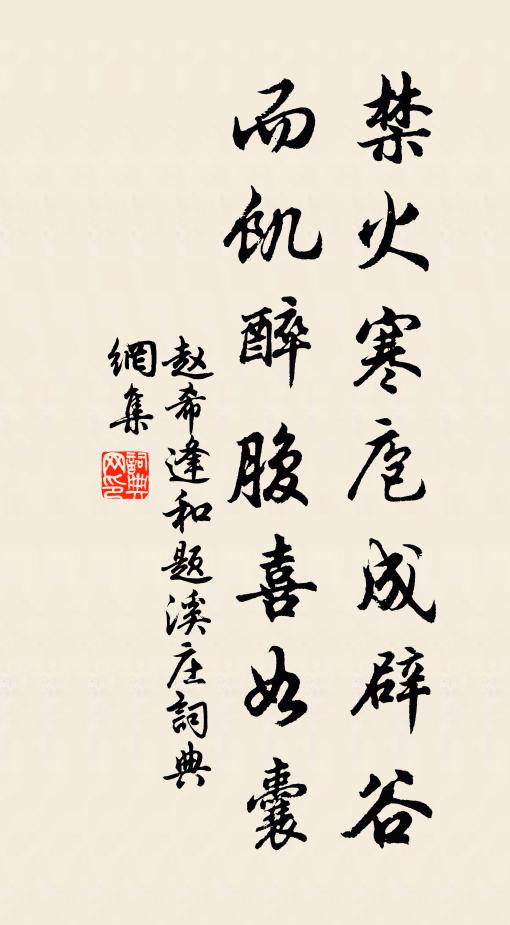 禁火寒庖成辟谷
而飢醉腹喜如囊
赵希逢和题溪庄詞典
網集
詞典
网印